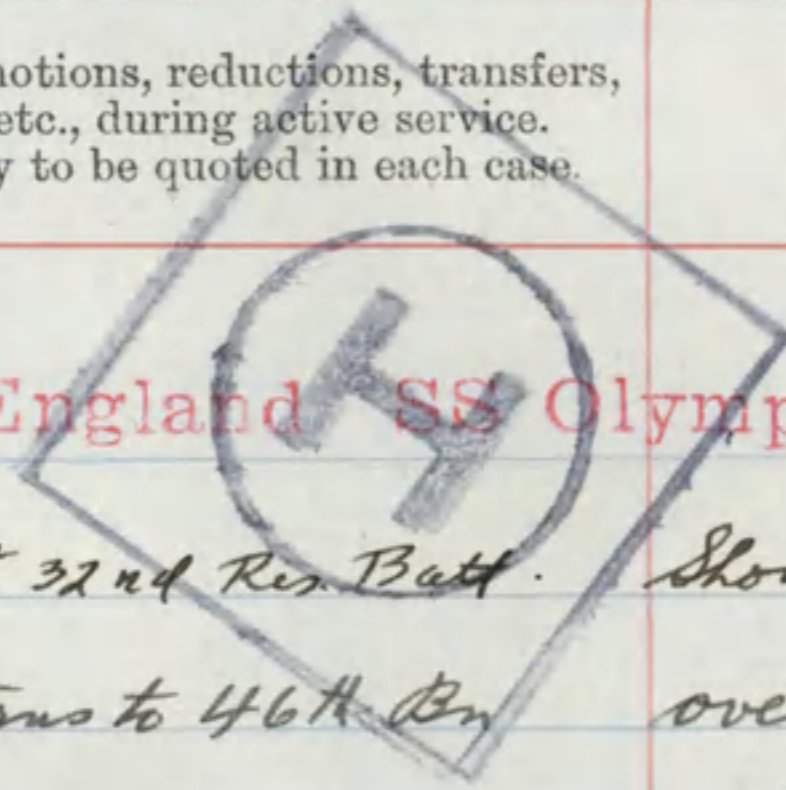 notions, reductions, transfers,
etc., during active service.
y to be quoted in each case.
England SS Olymp
H
32nd Res. Batt. Sho
ans to 46th Bn ove